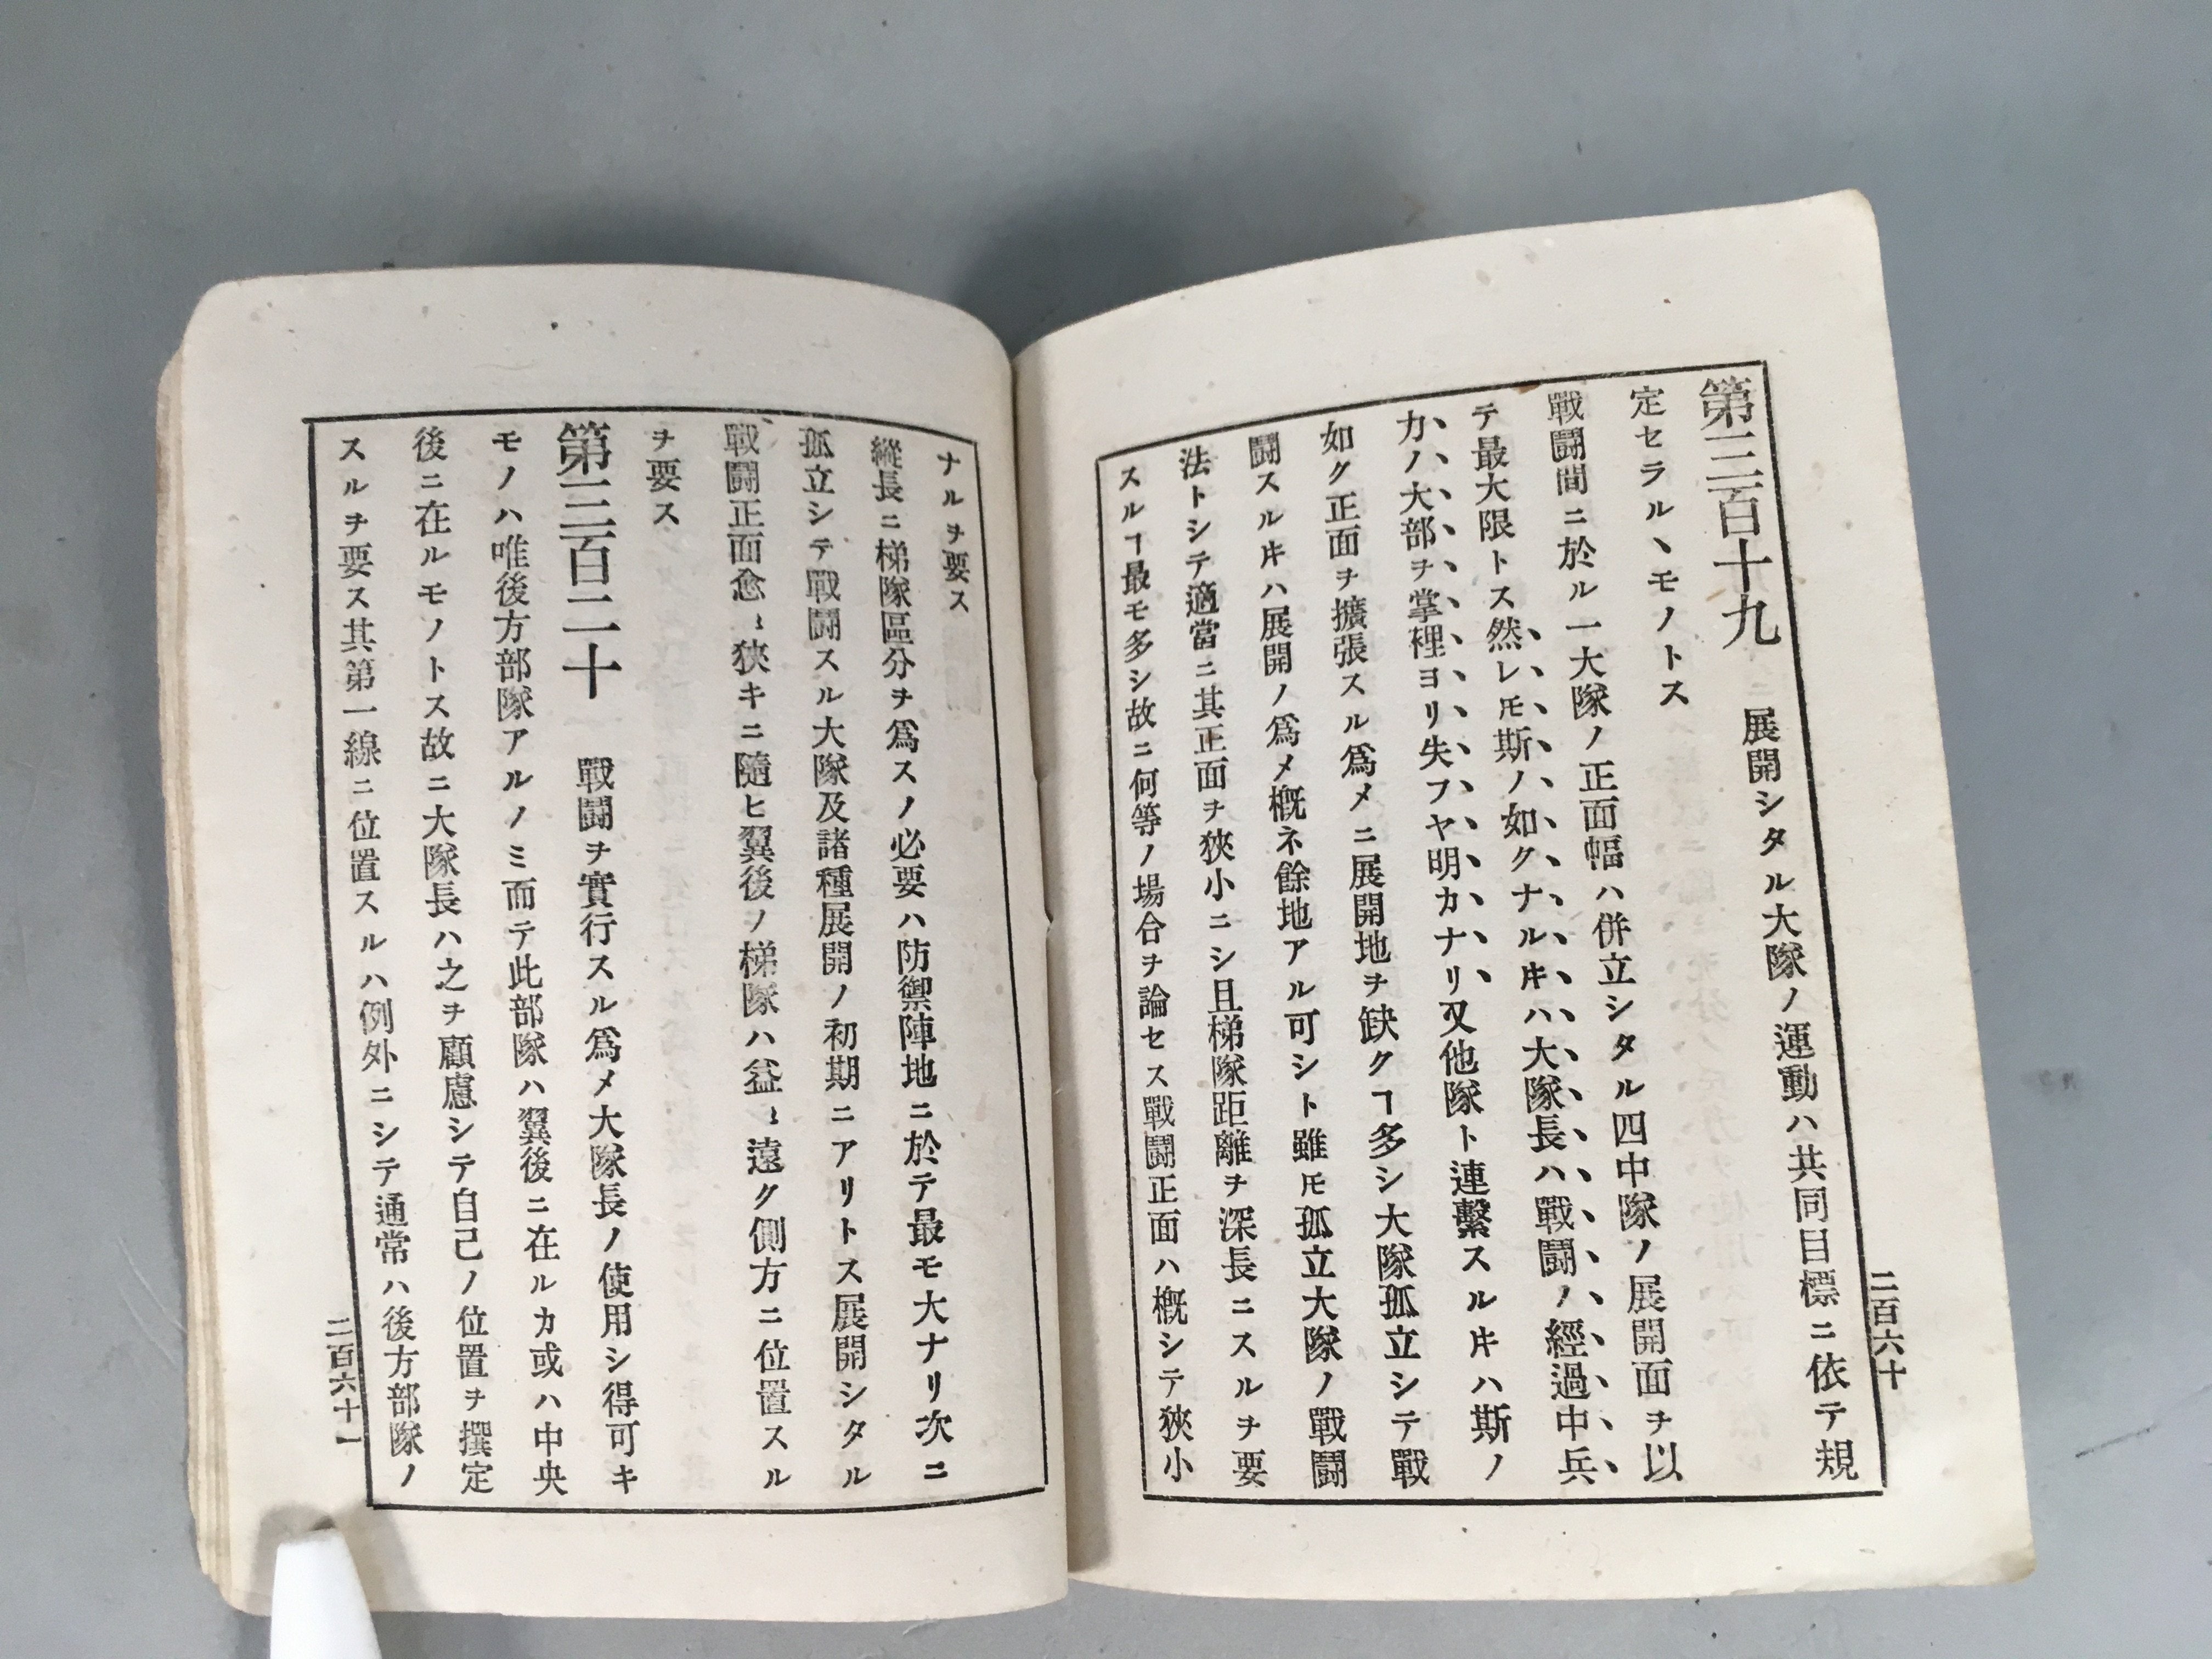 二百六十
第三百十九　展開シタル大隊ノ運動ハ共同目標ニ依テ規
定セラル、モノトス
戰鬪間ニ於ル一大隊ノ正面幅ハ併立シタル四中隊ノ展開面ヲ以
テ最大限トス然レ𪜈斯ノ如クナル𪜈ハ大隊長ハ戰鬪ノ經過中兵
力ノ大部ヲ掌裡ヨリ失フヤ明カナリ又他隊ト連繫スルキハ斯ノ
如ク正面ヲ擴張スル爲メニ展開地ヲ缺クヿ多シ大隊孤立シテ戰
鬪スルキハ展開ノ爲メ概ネ餘地アル可シト雖𪜈孤立大隊ノ戰鬪
法トシテ適當ニ其正面ヲ狹小ニシ且梯隊距離ヲ深長ニスルヲ要
スルヿ最モ多シ故ニ何等ノ場合ヲ論セス戰鬪正面ハ概シテ狹小
ナルヲ要ス
縱長ニ梯隊區分ヲ爲スノ必要ハ防禦陣地ニ於テ最モ大ナリ次ニ
孤立シテ戰鬪スル大隊及諸種展開ノ初期ニアリトス展開シタル
戰鬪正面愈〻狹キニ隨ヒ翼後ノ梯隊ハ益〻遠ク側方ニ位置スル
ヲ要ス
第三百二十　戰鬪ヲ實行スル爲メ大隊長ノ使用シ得可キ
モノハ唯後方部隊アルノミ而テ此部隊ハ翼後ニ在ルカ或ハ中央
後ニ在ルモノトス故ニ大隊長ハ之ヲ顧慮シテ自己ノ位置ヲ撰定
スルヲ要ス其第一線ニ位置スルハ例外ニシテ通常ハ後方部隊ノ
二百六十一